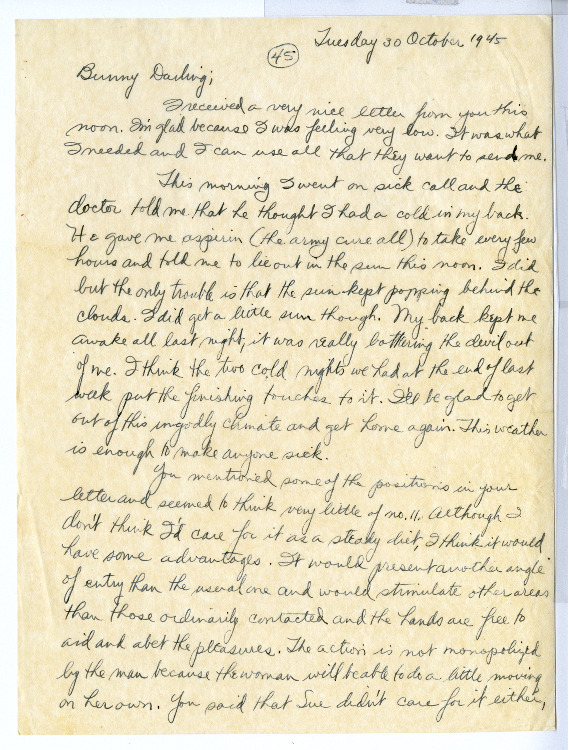 Tuesday 30 October 1945
45
Bunny Darling;
I received a very nice letter from you this
noon. I'm glad because I was feeling very low. It was what
I needed and I can use all that they want to send me.
This morning I went on sick call and the
doctor told me that he thought I had a cold in my back.
He gave me aspirin (the army cure all) to take every few
hours and told me to lie out in the sun this noon. I did
but the only trouble is that the sun kept popping behind the
clouds. I did get a little sun though. My back kept me
awake all last night, it was really bothering the devil out
of me. I think the two cold nights we had at the end of last
week put the finishing touches to it. I'll be glad to get
out of this ungodly climate and get home again. This weather
is enough to make anyone sick.
You mentioned some of the positions in your
letter and seemed to think very little of no. 11. Although I
don't think I'd care for it as a steady diet, I think it would
have some advantages. It would present another angle
of entry than the usual one and would stimulate other areas
than those ordinarily contacted and the hands are free to
aid and abet the pleasures. The action is not monopolized
by the man because the woman will be able to do a little moving
on her own. You said that Sue didn't care for it either,